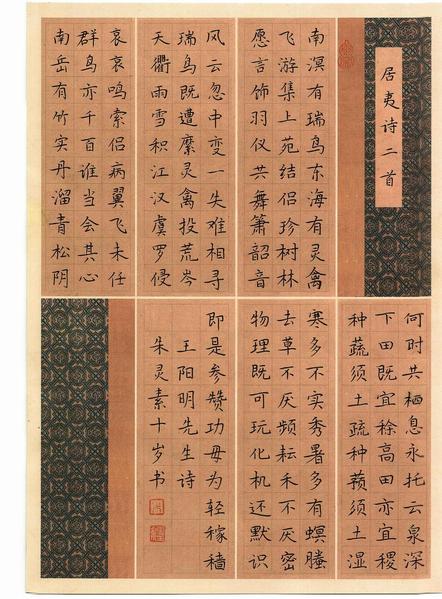 居夷诗二首
南溟有瑞鸟东海有灵禽
飞游集上苑结侣珍树林
愿言饰羽仪共舞箫韶音
风云忽中变一失难相寻
瑞鸟既遭縻灵禽投荒岑
天衢雨雪积江汉虞罗侵
哀哀鸣索侣病翼飞未任
群鸟亦千百谁当会其心
南岳有竹实丹溜青松阴
何时共栖息永托云泉深
下田既宜稌高田亦宜稷
种蔬须土疏种蓣须土湿
寒多不实秀暑多有螟螣
去草不厌频耘禾不厌密
物理既可玩化机还默识
即是参赞功毋为轻稼穑
王阳明先生诗
朱灵素十岁书